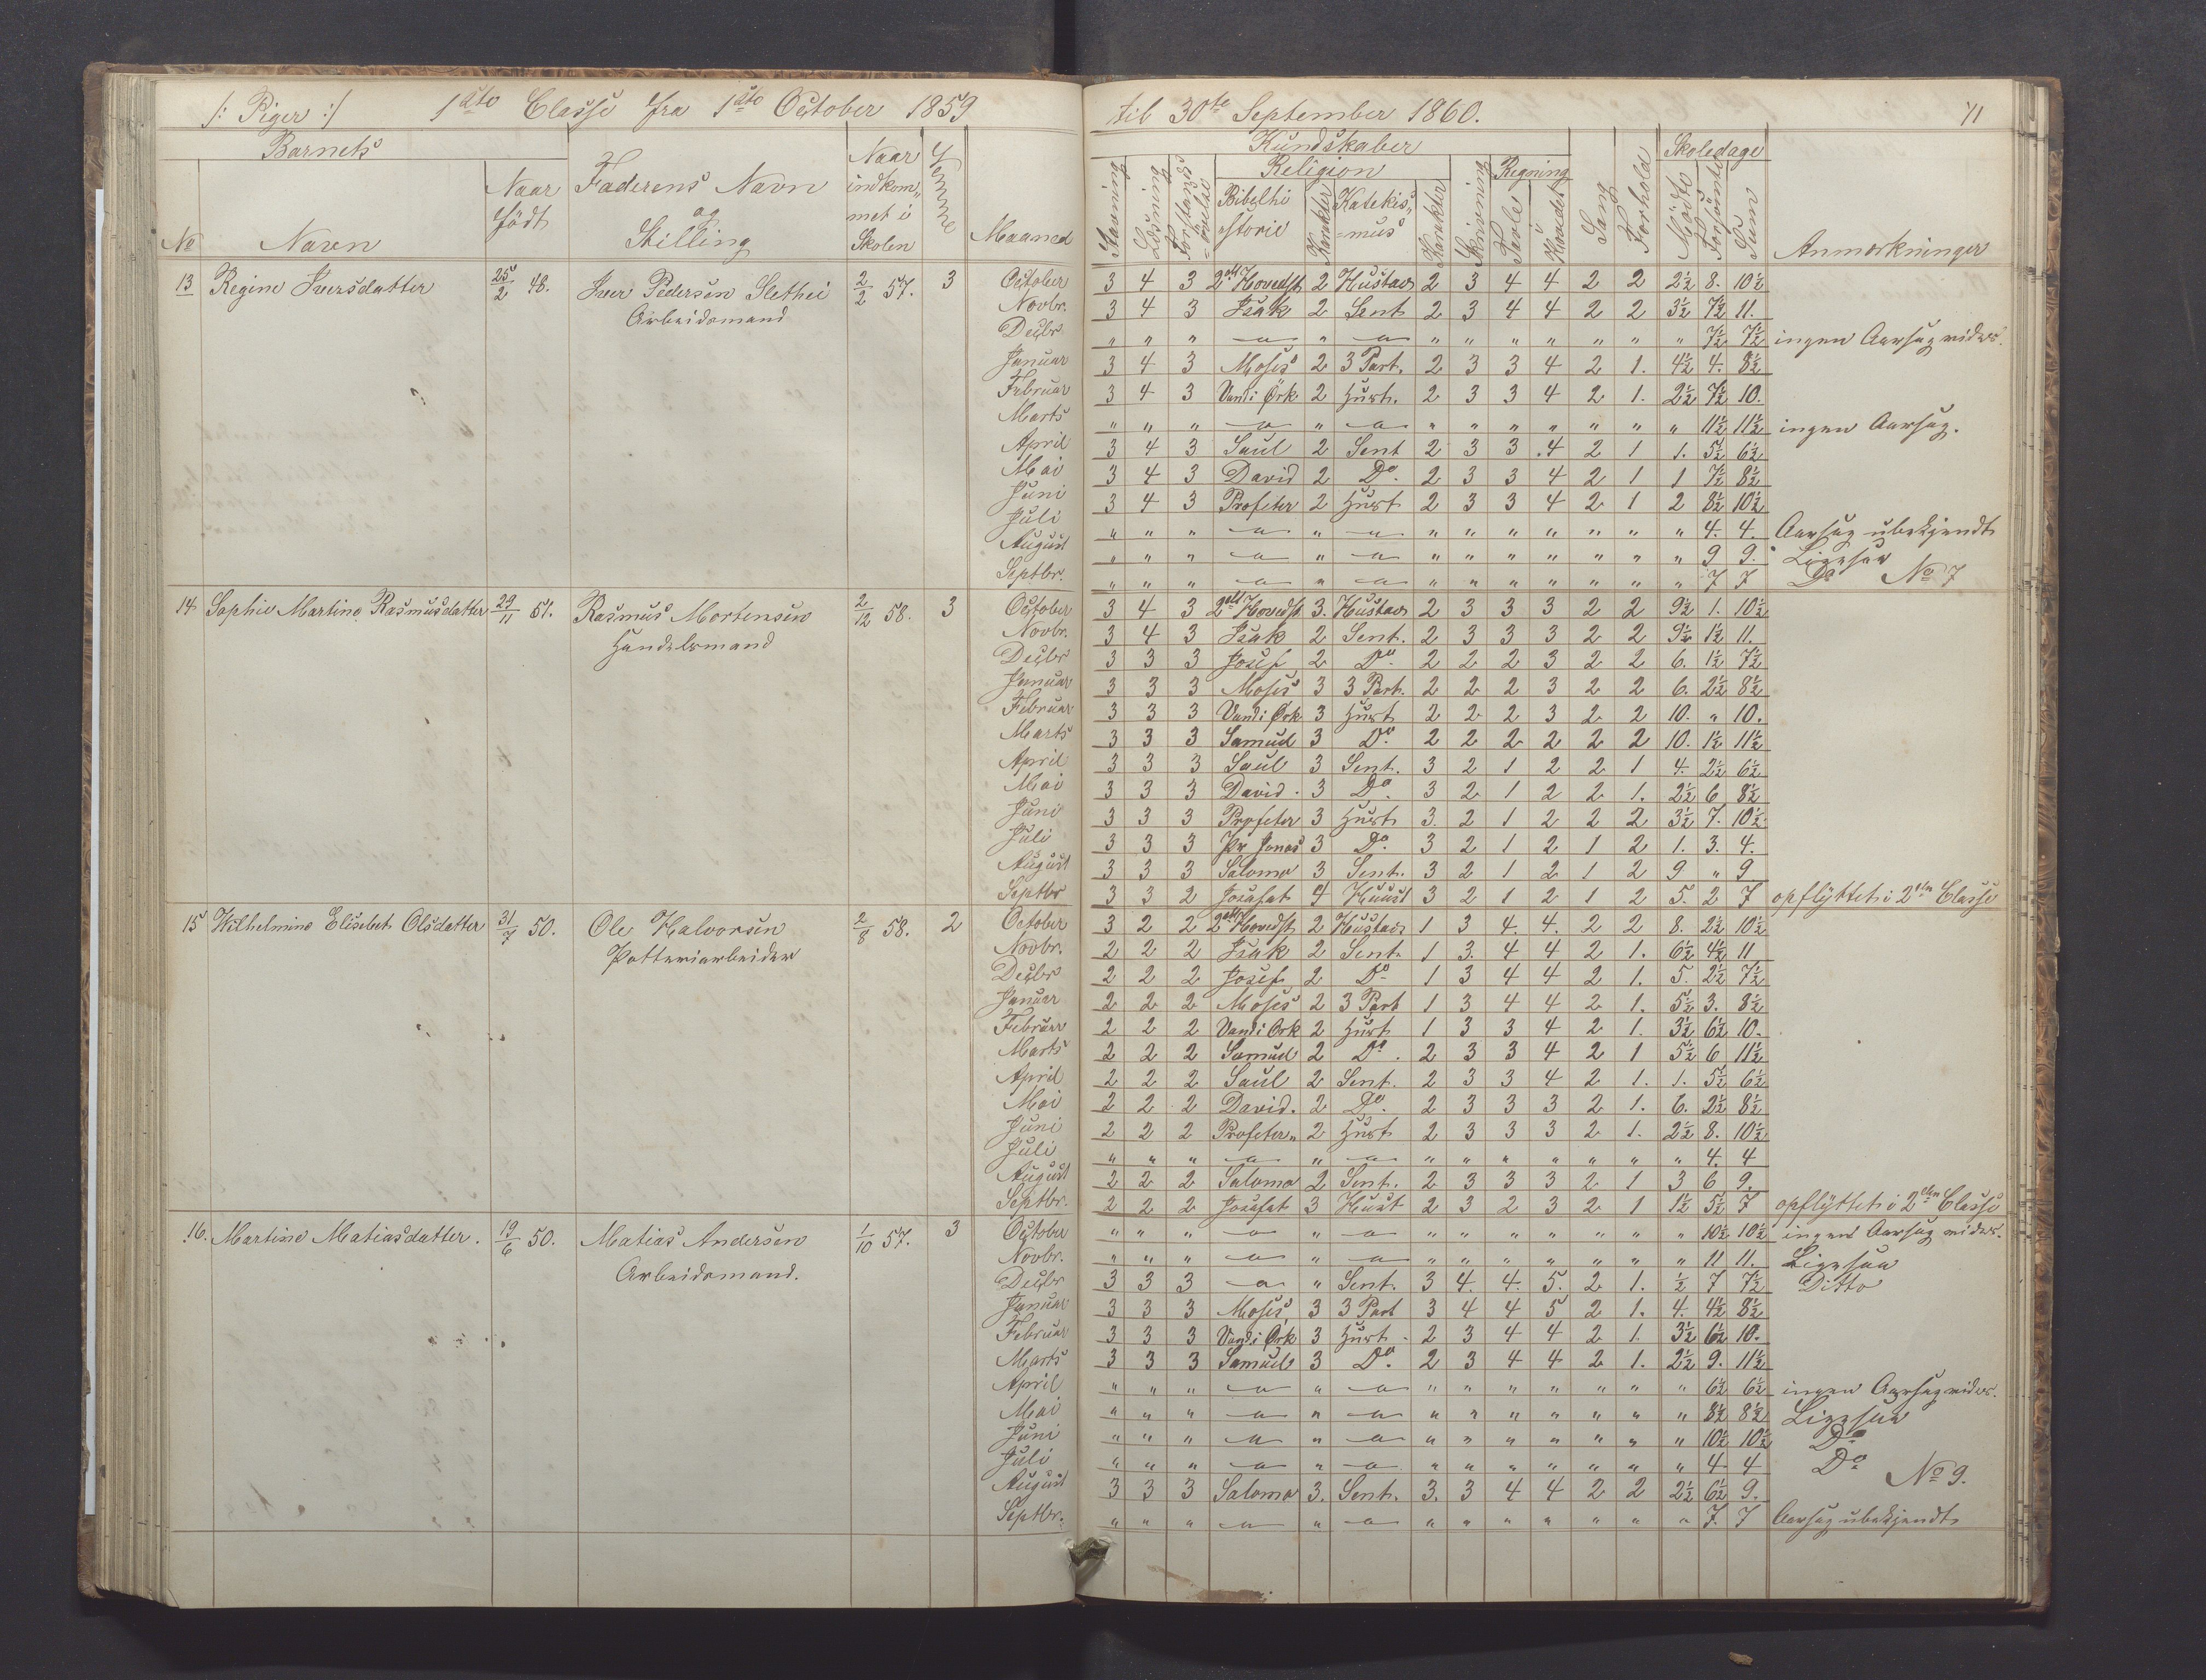 /: Piger :/ 1ste Classe fra 1ste October 1859 til 30te September 1860. 71
Barnets
No
Navn
Naar født
Faderens Navn og Stilling
Naar indkom„met i Skolen
Evnene
Maaned
Kundskaber
Stavning
Læsning
Forstandsøvelse
Religion
Bibelhistorie
Karakter
Katekis=mus
Karakter
Skrivning
Regning
Tavle
i Hovedet
Sang
Forhold
Skoledage
Mødte
Forsømte
Sum
Anmærkninger
13 Regine Iversdatter 25/2 48. Iver Pedersen Slethei Arbeidsmand 2/2 57. 3
October 3 4 3 2det Hovedst 2 Hustav 2 3 4 4 2 2 2½ 8. 10½
Novbr. 3 4 3 Isak 2 Sent 2 3 4 4 2 2 3½ 7½ 11.
Decbr " " " — " — " " " " " " " 7½ 7½ ingen Aarsag vides.
Januar 3 4 3 Moses 2 3 Part. 2 3 3 4 2 1. 4½ 4. 8½
Februar 3 4 3 Vand i Ørk 2 Hust. 2 3 3 4 2 1. 2½ 7½ 10.
Marts " " " — " — " " " " " " " 11½ 11½ ingen Aarsag.
April 3 4 3 Saul 2 Sent 2 3 3 4 2 1 1. 5½ 6½
Mai 3 4 3 David 2 Do. 2 3 3 4 2 1 1 7½ 8½
Juni 3 4 3 Profeter 2 Hust 2 3 3 4 2 1 2 8½ 10½
Juli " " " — " — " " " " " " " 4. 4. Aarsag ubekjendt
August " " " — " — " " " " " " " 9 9. Ligesaa
Septbr. " " " — " — " " " " " " " 7 7 Do No 7
14. Sophie Martine Rasmusdatter 29/11 51. Rasmus Mortensen Handelsmand 2/12 58. 3
October 3 4 3 2det Hovedst. 3. Hustav 2 3 3 3 2 2 9½ 1. 10½
Novbr. 3 4 3 Isak 2 Sent. 2 3 3 3 2 2 9½ 1½ 11.
Decbr 3 3 3 Josef 2 Do. 2 2 2 3 2 2 6. 1½ 7½
Januar 3 3 3 Moses 3 3 Part. 2 2 2 3 2 2 6. 2½ 8½
Februar 3 3 3 Vand i Ørk 3 Hust 2 2 2 3 2 2 10. " 10.
Marts 3 3 3 Samuel 3 Do. 2 2 2 2 2 2 10. 1½ 11½
April 3 3 3 Saul 3 Sent. 3 2 1 2 2 1 4. 2½ 6½
Mai 3 3 3 David. 3 Do. 3 2 1 2 2 1. 2½ 6 8½
Juni 3 3 3 Profeter 3 Hust 3. 2 1 2 2 2 3½ 7. 10½
Juli 3 3 3 Pr Jonas 3 Do. 3 2 1 2 1 2 1. 3. 4.
August 3 3 3 Salomo 3 Sent. 3 2 1 2 1 2 9 " 9
Septbr 3 3 2 Josafat 4 Huust 3 2 1 2 1 2 5. 2 7 opflyttet i 2den Classe
15 Wilhelmine Elisebet Olsdatter 31/7 50. Ole Halvorsen Potteriarbeider 2/8 58. 2
October 3 2 2 2det Hovedst 2 Hustav 1 3 4. 4. 2 2 8. 2½ 10½
Novbr. 2 2 2 Isak 2 Sent. 1 3. 4 4 2 1. 6½ 4½ 11
Decbr 2 2 2 Josef 2 Do 1 3 4 4 2 1. 5. 2½ 7½
Januar 2 2 2 Moses 2 3 Part 1 3 4 4 2 1. 5½ 3. 8½
Februar 2 2 2 Vand i Ørk 2 Hust 1 3 3 4 2 1. 3½ 6½ 10.
Marts 2 2 2 Samuel 2 Do. 2 3 3 4 2 1 5½ 6 11½
April 2 2 2 Saul 2 Sent. 2 3 3 4 2 1. 1. 5½ 6½
Mai 2 2 2 David. 2 Do. 2 3 3 3 2 1. 6. 2½ 8½
Juni 2 2 2 Profeter„ 2 Hust 2 3 3 3 2 1. 2½ 8. 10½
Juli " " " — " — " " " " " " " 4. 4
August 2 2 2 Salomo 2 Sent. 2 3 3 3 2 1 3 6 9.
Septbr. 2 2 2 Josafat 3 Hust 2 3 2 3 2 1 1½ 5½ 7 opflyttet i 2den Classe
16. Martine Matiasdatter. 19/6 50. Matias Andersen Arbeidsmand. 1/10 57. 3
October " " " — " — " " " " " " " 10½ 10½ ingen Aarsag vides.
Novbr. " " " — " — " " " " " " " 11 11. Ligesaa
Decbr 3 3 3 — " Sent. 3 4. 4. 5. 2 1. ½ 7 7½ Ditto
Januar 3 3 3 Moses 3 3 Part 3 4 4 5 2 1. 4. 4½ 8½
Februar 3 3 3 Vand i Ørk 3 Hust. 2 3 4 4 2 1. 3½ 6½ 10.
Marts 3 3 3 Samuel 3 Do. 2 3 4 4 2 1. 2½ 9. 11½
April " " " — " — " " " " " " " 6½ 6½ ingen Aarsag vides.
Mai " " " — " — " " " " " " " 8½ 8½ Ligesaa
Juni " " " — " — " " " " " " " 10½ 10½ Do
Juli " " " — " — " " " " " " " 4. 4 Do No 9.
August 3 3 3 Salomo 3. Sent. 3. 3 4 4 2 2 2½ 6½ 9.
Septbr. " " " — " — " " " " " " " 7. 7 Aarsag ubekjendt